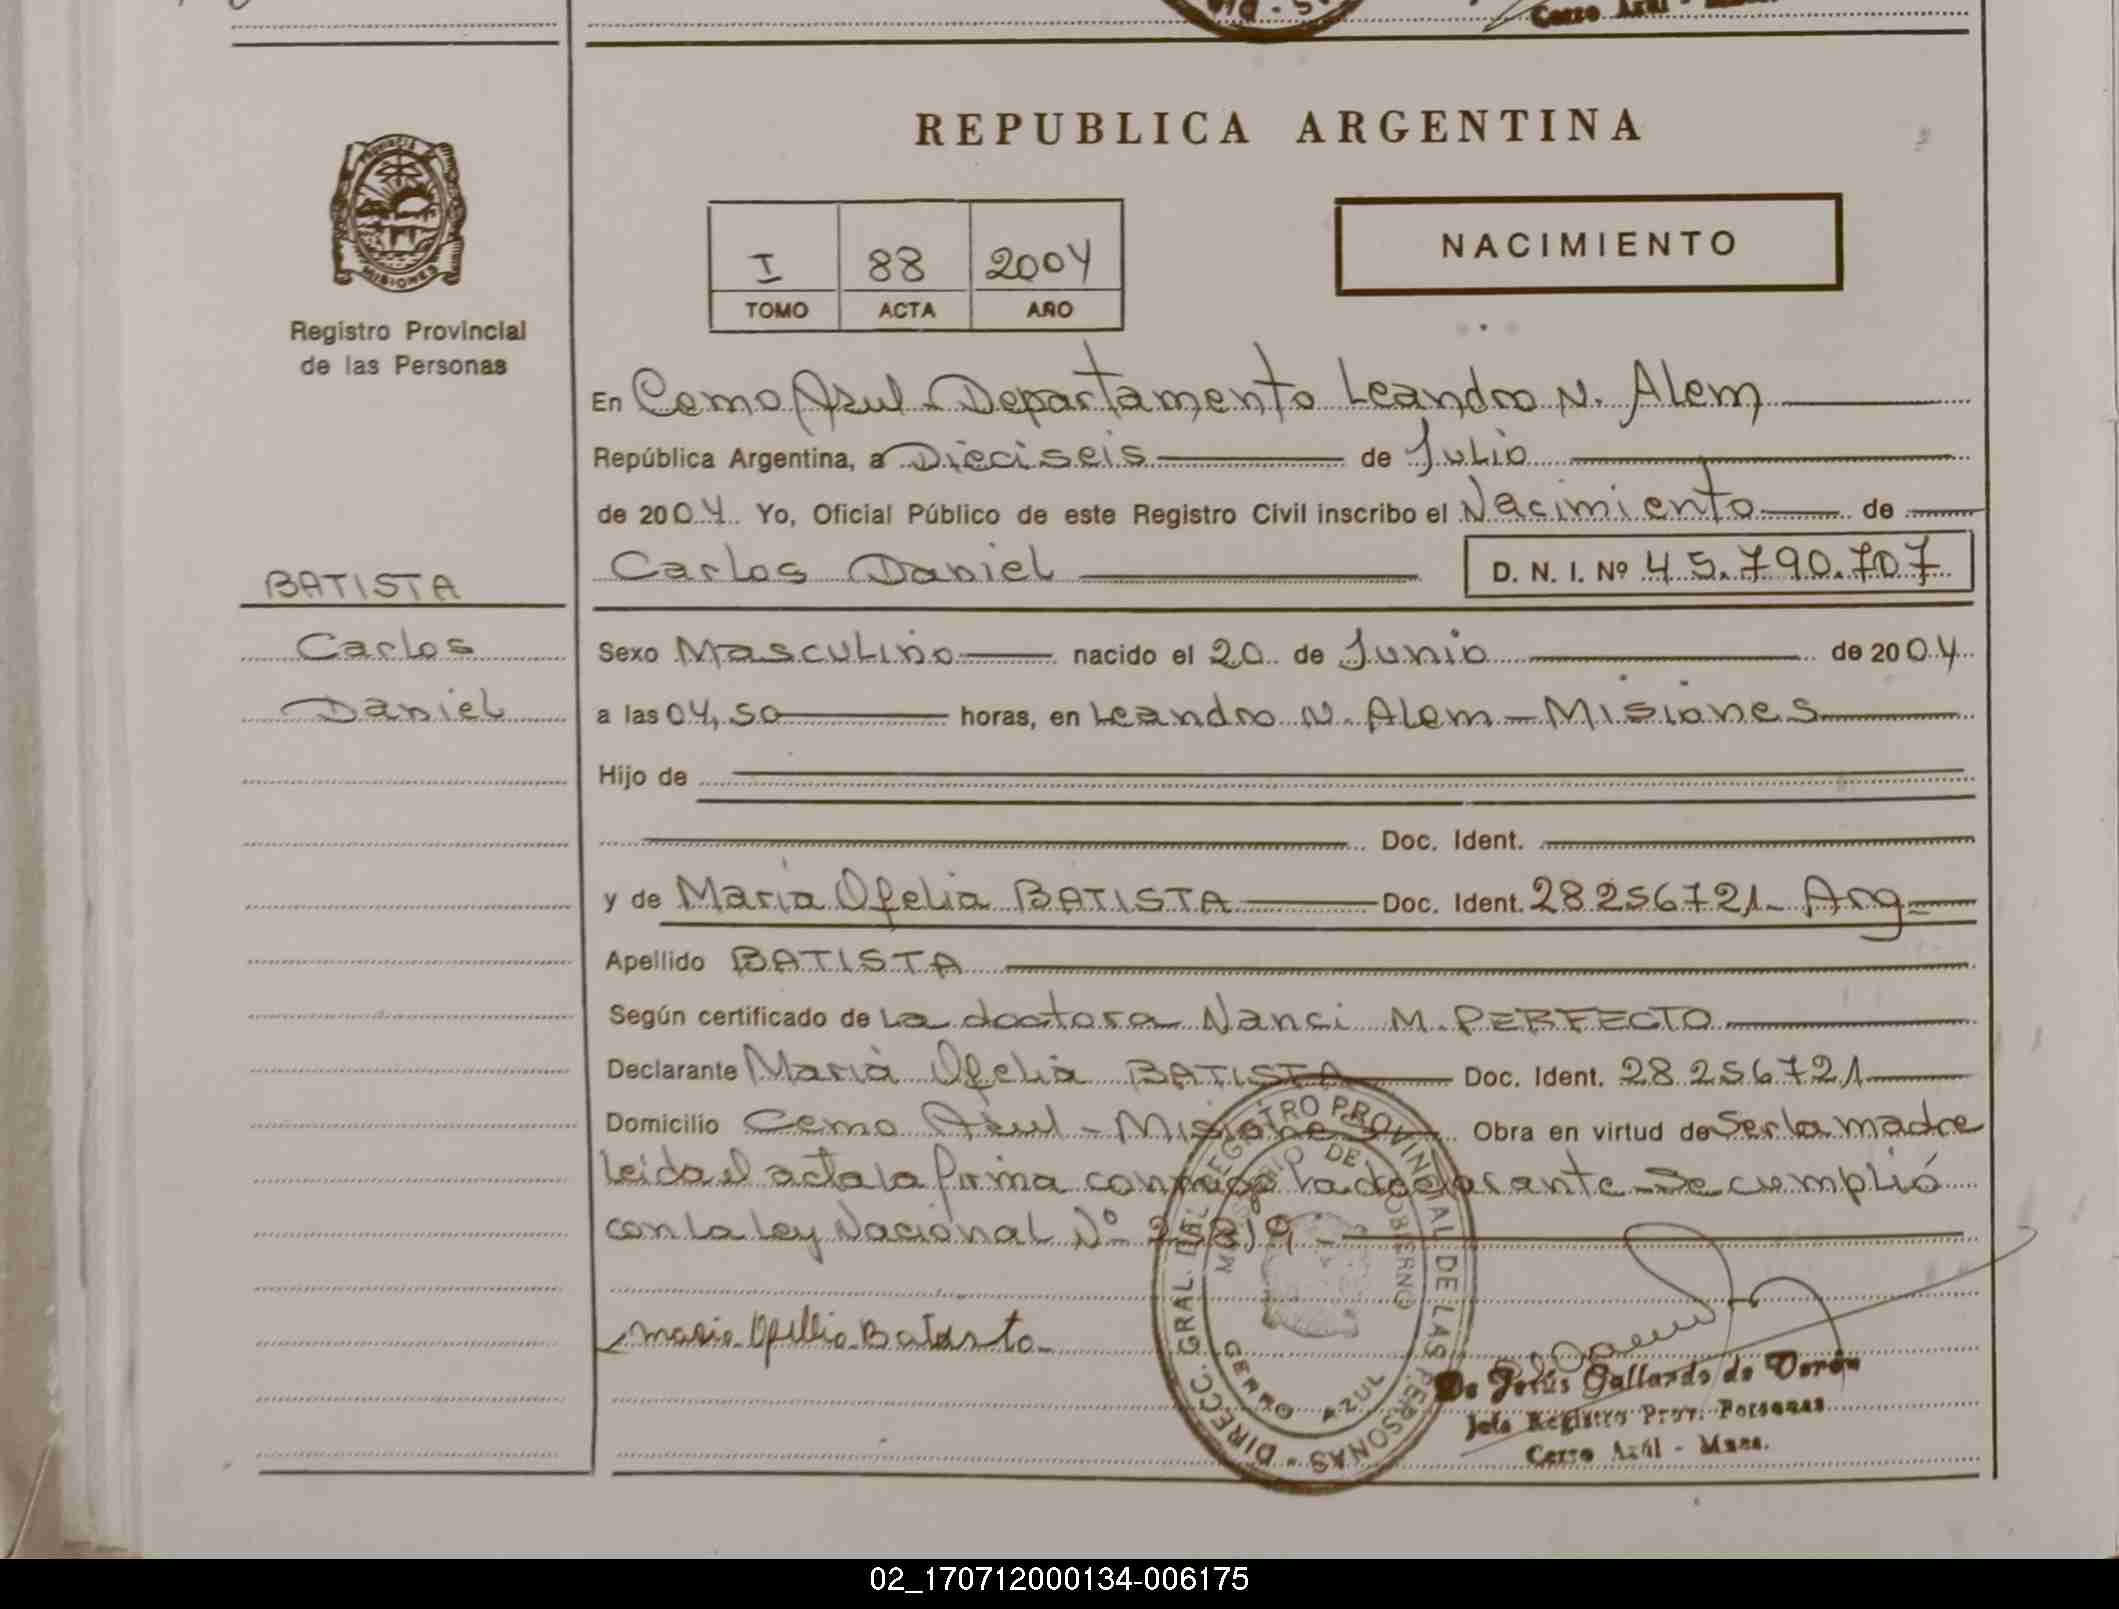 Cerro Azul - Misi
REPUBLICA ARGENTINA
PROVINCIA DE
MISIONES
Registro Provincial
de las Personas
I 88 2004
TOMO ACTA AÑO
NACIMIENTO
En Cerro Azul - Departamento Leandro N. Alem
República Argentina, a Dieciseis de Julio
de 2004 Yo, Oficial Público de este Registro Civil inscribo el Nacimiento de
Carlos Daniel D. N. I. Nº 45.790.707
BATISTA
Carlos
Daniel
Sexo Masculino nacido el 20 de Junio de 2004
a las 04,50 horas, en Leandro N. Alem - Misiones
Hijo de
Doc. Ident.
y de Maria Ofelia BATISTA Doc. Ident. 28256721- Arg-
Apellido BATISTA
Según certificado de La doctora Nanci M. PERFECTO
Declarante Maria Ofelia BATISTA Doc. Ident. 28256721
Domicilio Cerro Azul - Misiones Obra en virtud de Ser la madre
Leida el acta la firma conmigo la declarante - Se cumplió
con la Ley Nacional Nº
Maria Ofelia Batista
DIRECC. GRAL. DEL REGISTRO PROVINCIAL DE LAS PERSONAS
MINISTERIO DE GOBIERNO
CERRO AZUL
De Jesús Gallardo de Verón
Jefe Registro Prov. Personas
Cerro Azúl - Mnes.
02_170712000134-006175